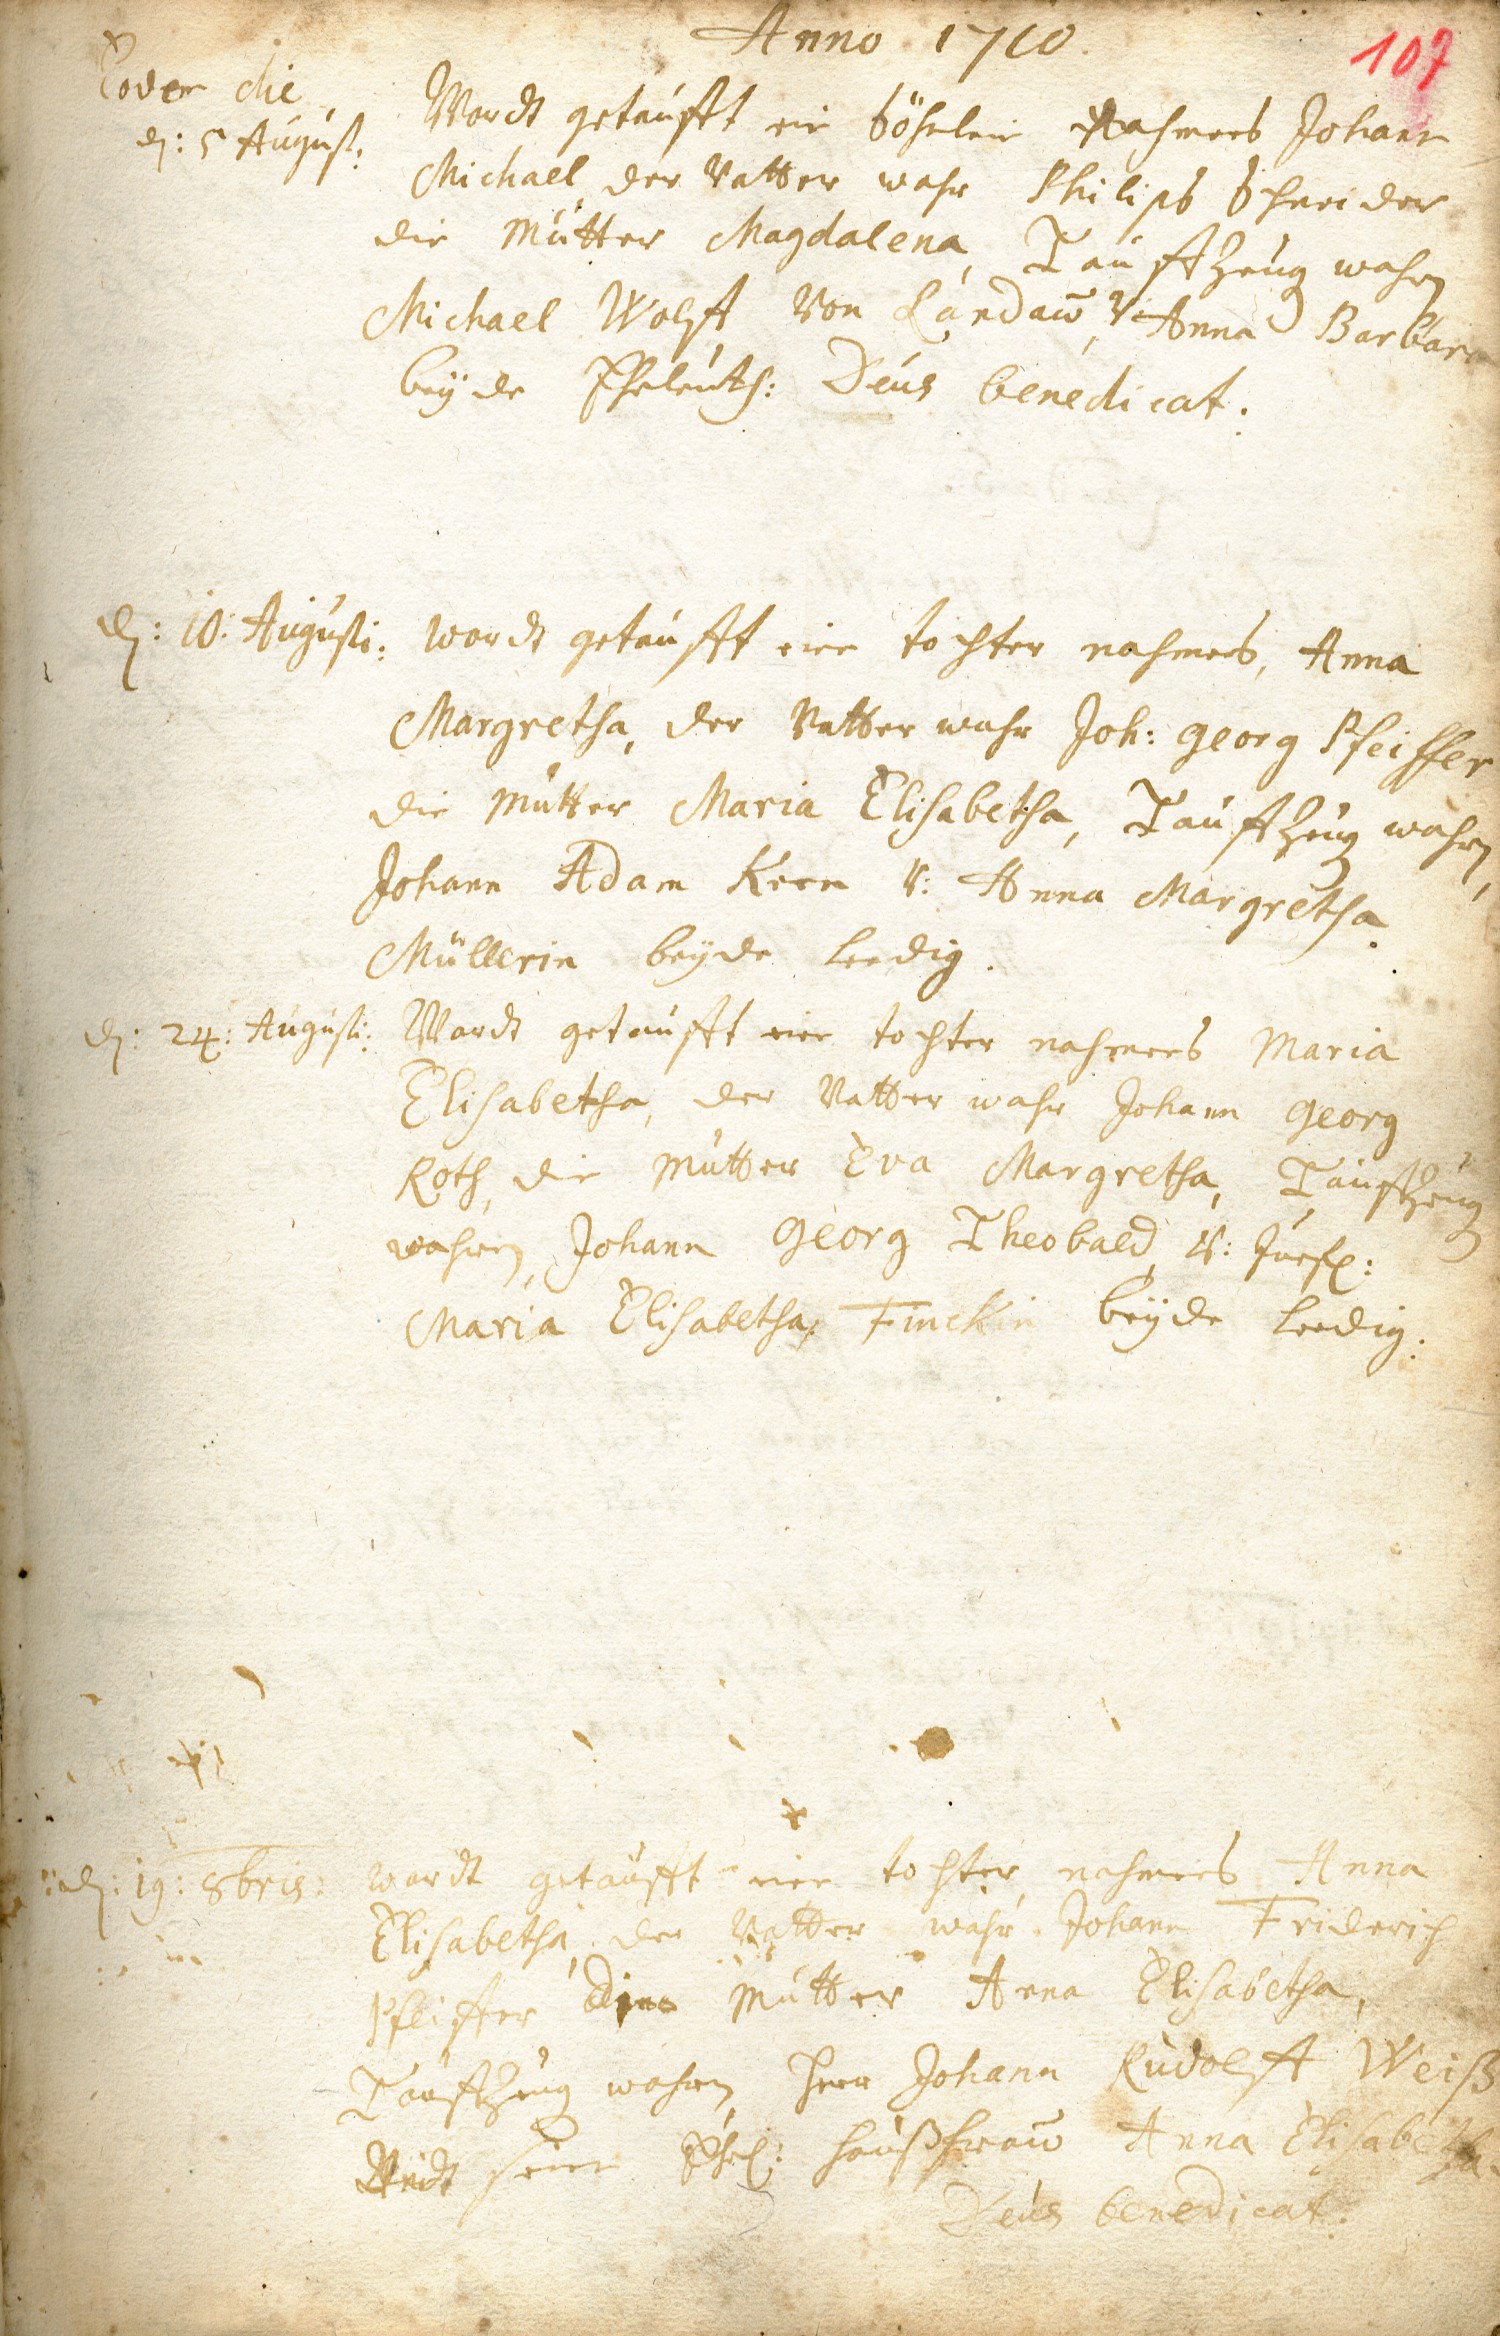 Anno 1710.
107
Eodem die,
d: 5 August: Wardt getaufft ein Söhnlein Nahmens Johann
Michael der Vatter wahr Philips Schneider
die Mutter Magdalena, Tauffzeug wahren
Michael Wolff Von Landaw, V: Anna Barbara
beÿde Eheleuth: Deus benedicat.
d: 10: Augusti: wardt getaufft eine tochter nahmens, Anna
Margretha, der Vatter wahr Joh: Georg Pfeiffer
die Mutter Maria Elisabetha, Tauffzeug wahren,
Johann Adam Kern V: Anna Margretha
Müllerin beÿde Leedig.
d: 24: Augusti: Wardt getaufft eine tochter nahmens Maria
Elisabetha, der Vatter wahr Johann Georg
Roth, die Mutter Eva Margretha, Tauffzeug
wahren, Johann Georg Theobald, V: Jungf:
Maria Elisabetha, Finckin beÿde Leedig:
d: 19: 8bris: wardt getäufft eine tochter, nahmens Anna
Elisabetha, der Vatter wahr Johann Friderich
Pfeiffer Die Mutter Anna Elisabetha,
Tauffzeug wahren, Herr Johann Rudolff Weiß
Undt seine Ehel: Haußfraw Anna Elisabetha.
Deus benedicat.